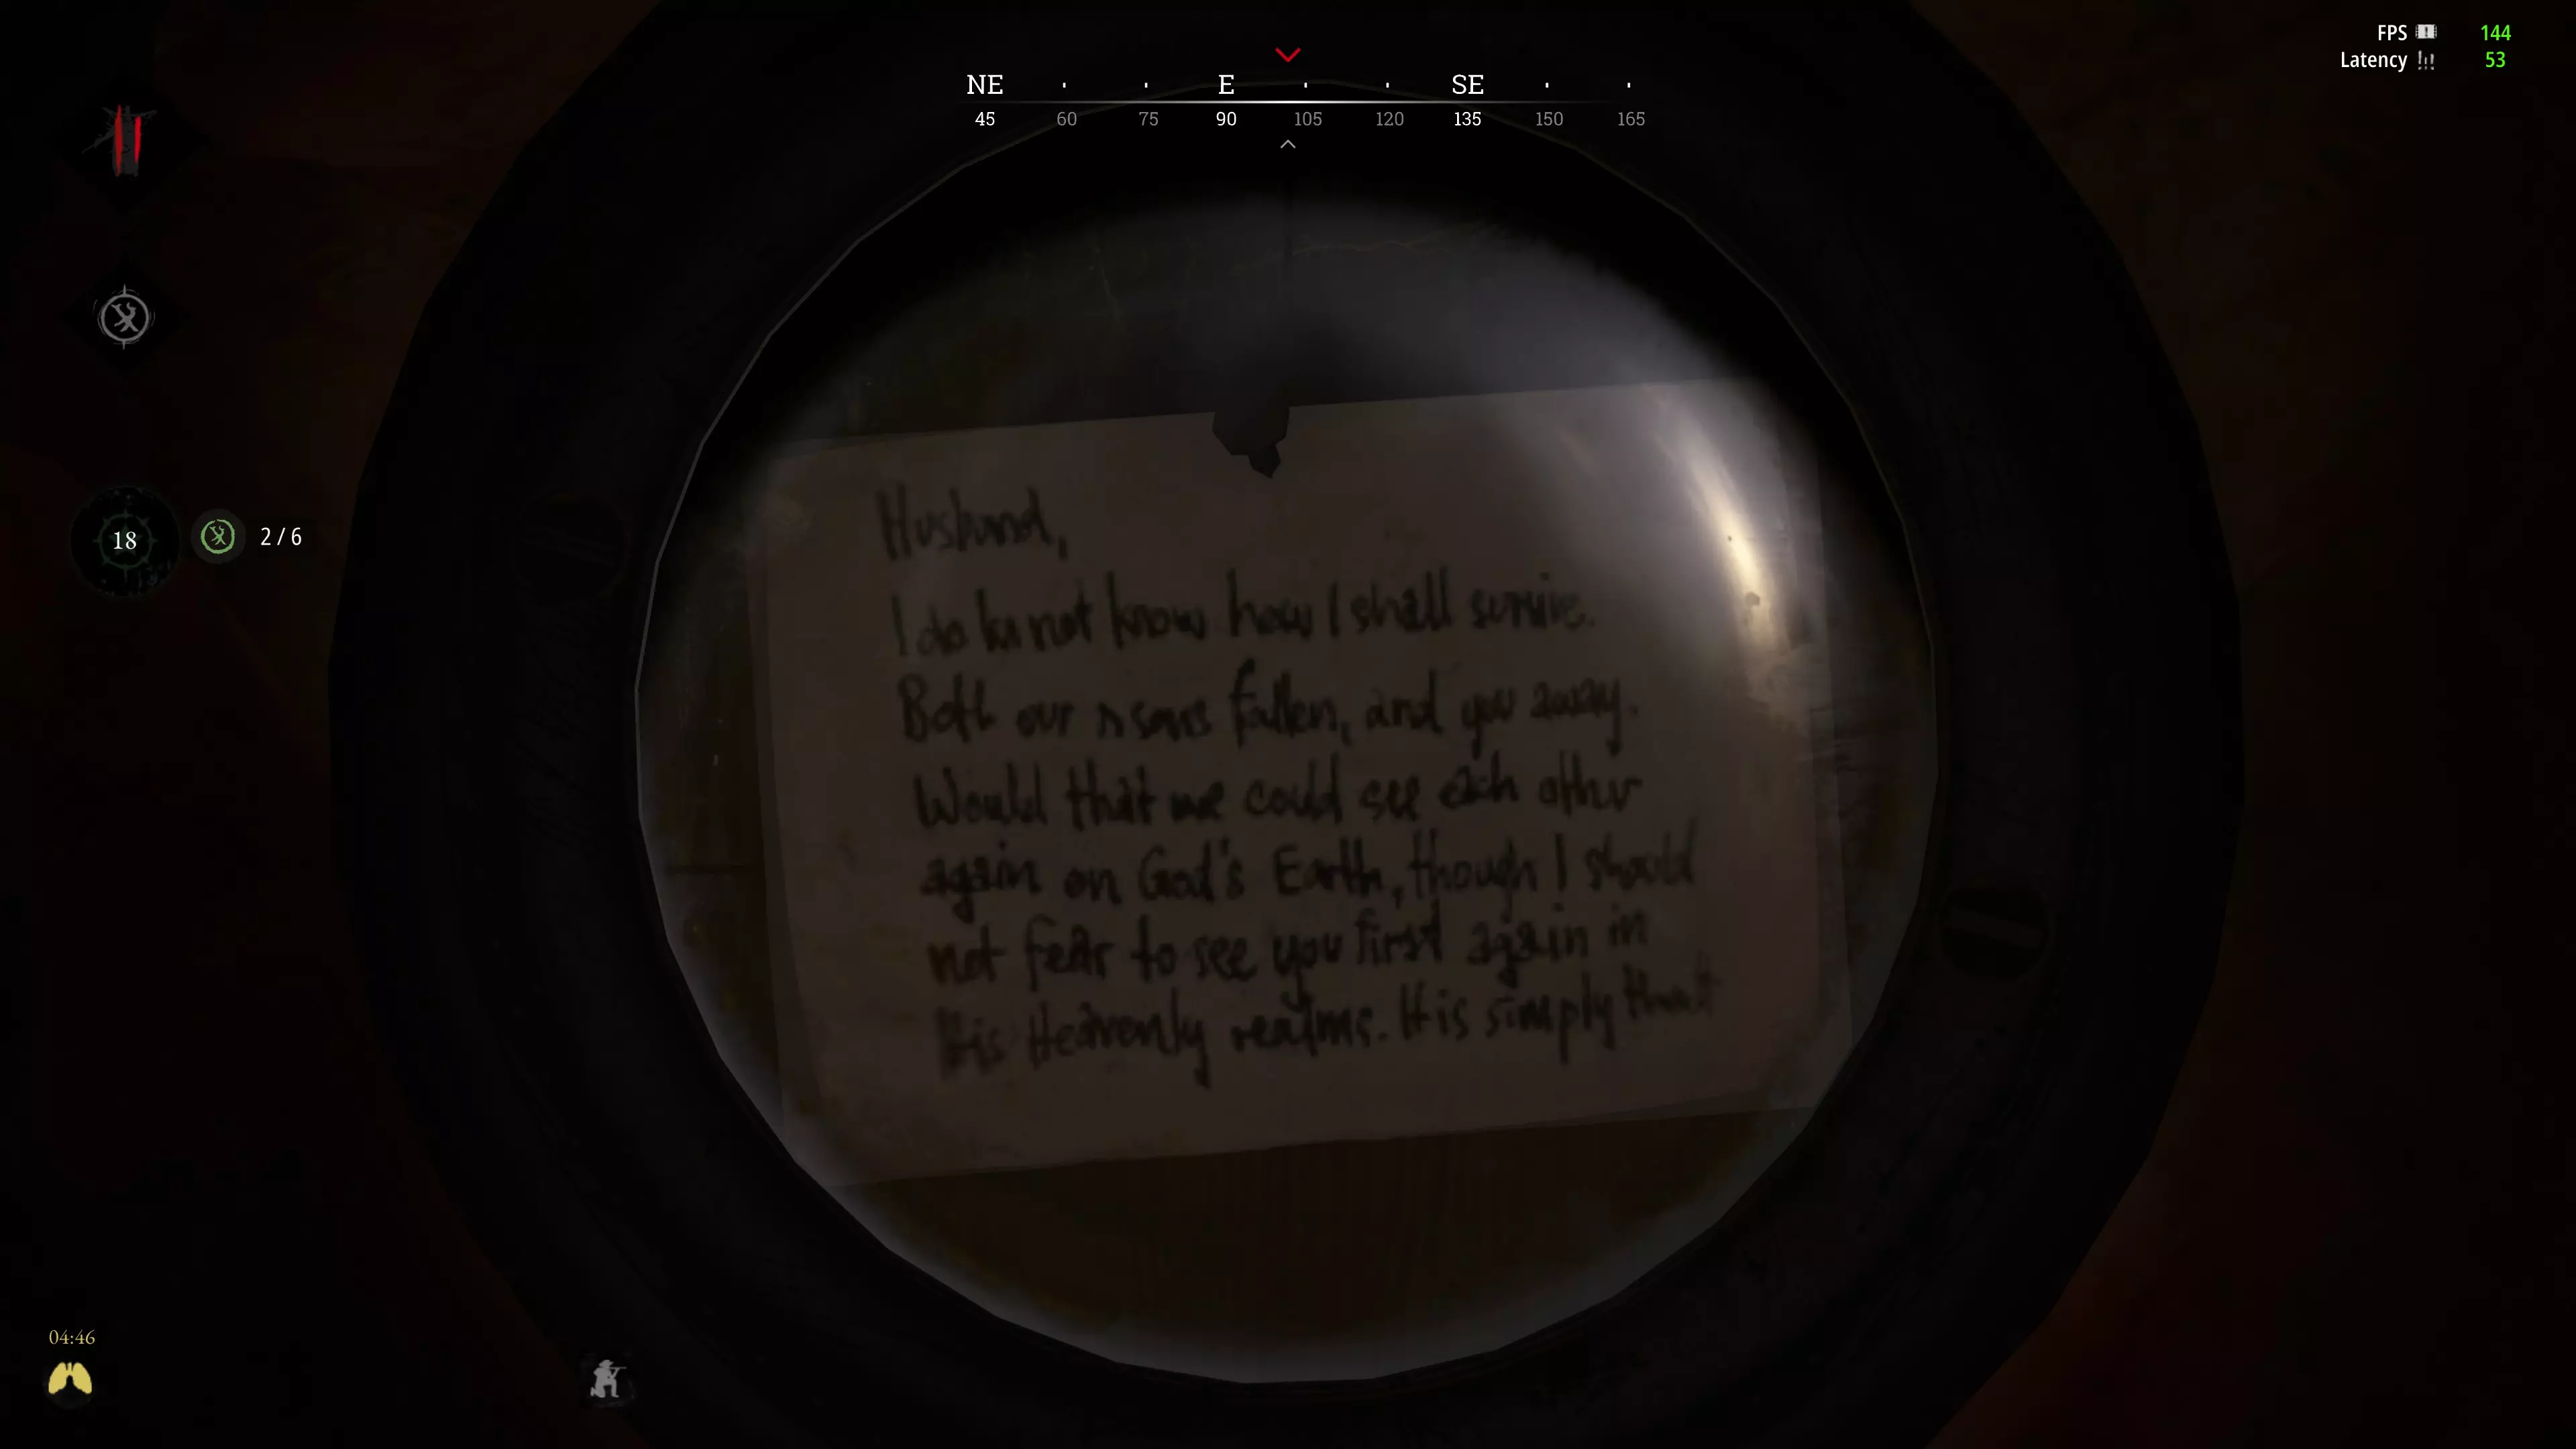 FPS 144
Latency 53
NE E SE
45 60 75 90 105 120 135 150 165
18 2 / 6
Husband,
I do kn not know how I shall survive.
Both our s sons fallen, and you away.
Would that we could see each other
again on God's Earth, though I should
not fear to see you first again in
His Heavenly realms. It is simply that
04:46